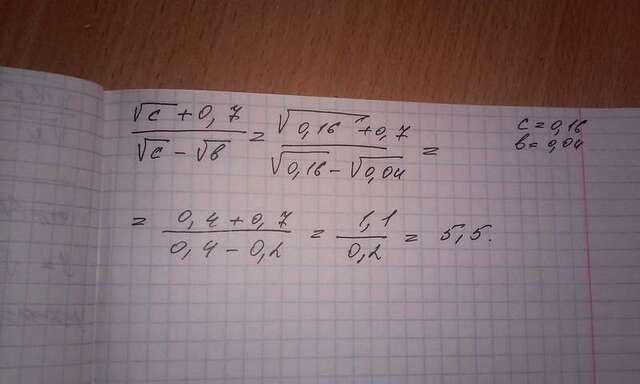 (√c + 0,7)/(√c - √b) = (√0,16 + 0,7)/(√0,16 - √0,04) =
c = 0,16
b = 0,04
= (0,4 + 0,7)/(0,4 - 0,2) = 1,1/0,2 = 5,5.